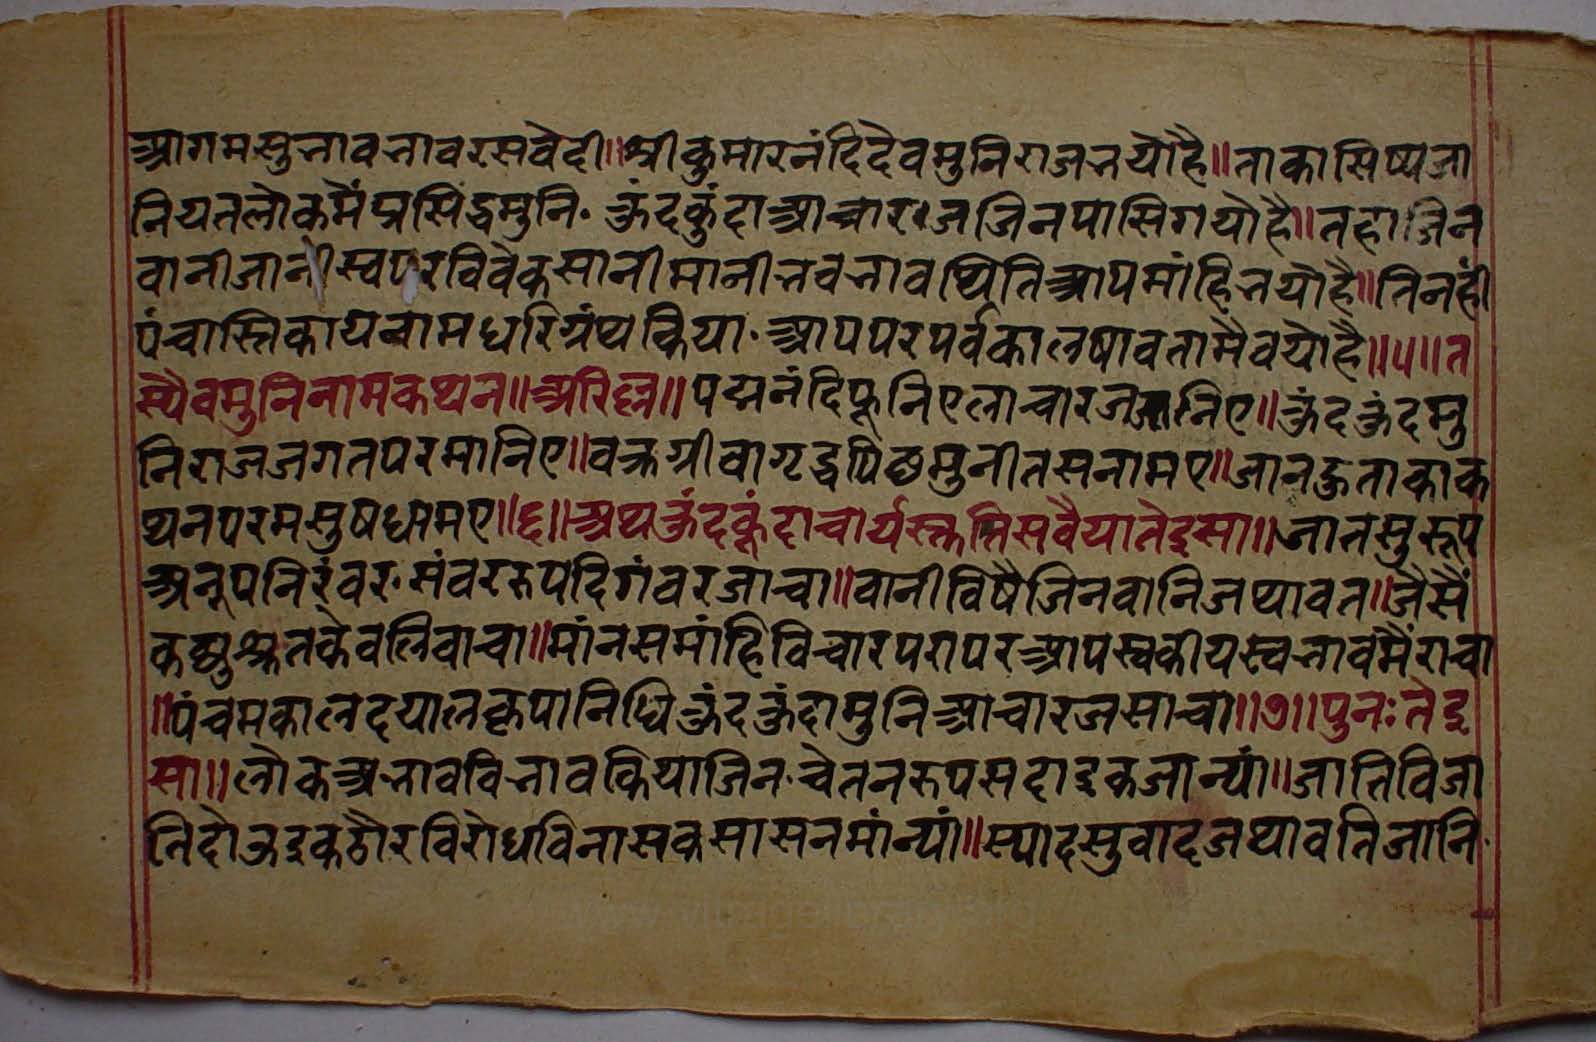 आगमसुभावभावरसवेदी॥श्रीकुमारनंदिदेवमुनिराजभयोहै॥ताकासिष्यजा
नियतलोकमैंप्रसिद्धमुनि॰कुंदकुंदाआचारजजिनपासिगयोहै॥तहाजिन
वानीजानीस्वपरविवेकसानीमानीभवभावथितिआपमांहिभयोहै॥तिनहीं
पंचास्तिकायनामधरिग्रंथकिया॰आपपरपर्वकालषावतामैवयोहै॥५॥त
स्यैवमुनिनामकथन॥अरिल्ल॥पद्मनंदिफूनिएलाचारजजानिए॥कुंदकुंदमु
निराजजगतपरमानिए॥वक्रग्रीवागृद्धपिछमुनीतसनामए॥जानहुताकाक
थनपरमसुषधामए॥६॥अथकुंदकुंदाचार्यस्तुतिसवैयातेइसा॥जानसुरूप
अनूपनिरंवर॰संवररूपदिगंवरजाचा॥वानीविषैजिनवानिजथावत॥जैसैं
कछुश्रुतकेवलिवाचा॥मांनसमांहिविचारपरापरआपस्वकीयस्वभावमैंराचा
॥पंचमकालदयालकृपानिधिकुंदकुंदामुनिआचारजसाचा॥७॥पुनःतेइ
सा॥लोकअभावविभावकियाजिन॰चेतनरूपसदाइकजान्यां॥जातिविजा
तिदोऊइकठौरविरोधविनासकसासनमांन्यां॥स्यादसुवादजथावतिजानि॰